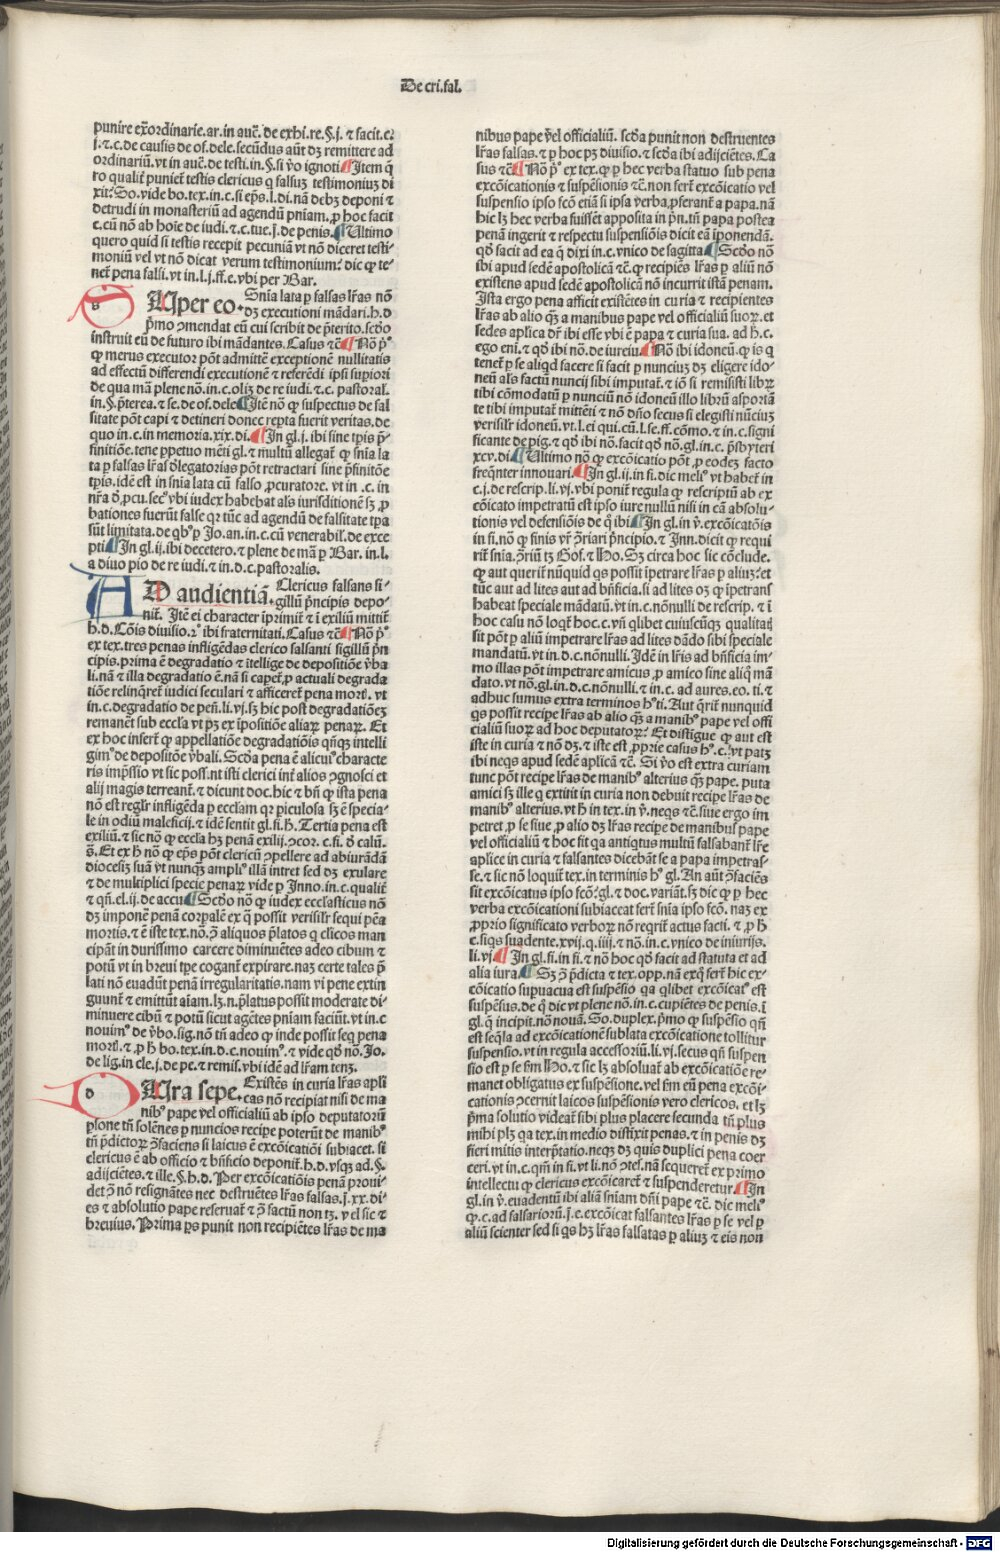 De cri.fal.
punire exͦordinarie.ar.in auc̄.de exhi.re.§.j.⁊ facit.c.
j.⁊.c.de causis de of.dele.secūdus aūt dꝫ remittere ad
ordinariū.vt in auc̄.de testi.in.§.si ṽo ignoti ¶ Item q̄
ro qualiť punieť testis clericus q̇ falsuꝫ testimoniuꝫ di
xit: So.vide bo.tex.in.c.si ep̄s.l.di.nā debꝫ deponi ⁊
detrudi in monasteriū ad agendū pn̄iam.ꝓ hoc facit
c.cū nō ab hoīe de iudi.⁊.c.tue.j.de penis. ¶ Ultimo
quero quid si testis recepit pecuniā vt nō diceret testi-
moniū vel vt nō dicat verum testimonium: dic ꝙ te-
neť pena falsi.vt in.l.j.ff.e.vbi per Bar.
s Uper eo. Sn̄ia lata ꝑ falsas lr̄as nō
dꝫ executioni mādari.h.d
p̄mo ꝯmendat eū cui scribit de p̄terito.scd̄o
instruit eū de futuro ibi mādantes.Casus ⁊c̄ ¶ Nō p̄ꝰ
ꝙ merus executor pōt admittē exceptionē nullitatis
ad effectū differendi executionē ⁊ referēdi ipsi supiori
de qua mā plene nō.in.c.oliꝫ de re iudi.⁊.c.pastoral.
in.§.p̄terea.⁊ se.de of.dele ¶ Itē nō ꝙ suspectus de fal
sitate pōt capi ⁊ detineri donec repta fuerit veritas.de
quo in.c.in memoria.xix.di. ¶ In gl.j.ibi sine tp̄is p̄-
finitiōe.tene ꝑpetuo mēti gl.⁊ multū allegať ꝙ sn̄ia la
ta ꝑ falsas lr̄as d̓legatorias pōt retractari sine p̄finitōe
tp̄is.idē est in sn̄ia lata cū falso ꝓcuratore.vt in.c.in
nr̄a d̓ ꝓcu.secꝰ vbi iudex habebat als iurisditionē sꝫ ꝓ
bationes fuerūt false qꝛ tūc ad agendū de falsitate tp̄a
sūt limitata.de qbꝰ ꝑ Jo.an.in.c.cū venerabil.de exce
pti ¶ In gl.ij.ibi decetero.⁊ plene de mā ꝑ Bar.in.l.
a diuo pio de re iudi.⁊ in.d.c.pastoralis.
A D audientiā. Clericus falsans si-
gillū p̄ncipis depo-
niť. Itē ei character īprimiť ⁊ ī exiliū mittiť
h.d.Cōis diuisio.2ꝰ ibi fraternitati.Casus ⁊c̄ ¶ Nō p̄ꝰ
ex tex.tres penas infligēdas clerico falsanti sigillū p̄n
cipis.prima ē degradatio ⁊ ītellige de depositiōe ṽba
li.nā ⁊ illa degradatio ē.nā si capeť ꝓ actuali degrada
tiōe relinq̄reť iudici seculari ⁊ afficereť pena morť.vt
in.c.degradatio de pen̄.li.vj.sꝫ hic post degradatiōeꝫ
remaneť sub eccl̄a vt pꝫ ex īpositiōe aliaꝝ penaꝝ. Et
ex hoc inferť ꝙ appellatiōe degradatiōis qn̄qꝫ intelli
gimꝰ de depositōe ṽbali. Scd̄a pena ē alicuiꝰ characte
ris imp̄ssio vt sic poss.nt isti clerici inť alios ꝯgnosci et
alij magis terreanť.⁊ dicunt doc.hic ⁊ bn̄ ꝙ ista pena
nō est regl̄r infligēda ꝑ ecclam qꝛ piculosa sꝫ ē specia-
le in odiū maleficij.⁊ idē sentit gl.fi.h̄. Tertia pena est
exiliū.⁊ sic nō ꝙ eccl̄a hꝫ penā exilij.ꝯcor.c.fi.d̓ calū.
s̄. Et ex h̄ nō ꝙ ep̄s pōt clericū ꝯpellere ad abiurādā
diocesiꝫ suā ṽt nunqꝫ ampliꝰ illā intret sed dꝫ exulare
⁊ de multiplici specie penaꝝ vide ꝑ Inno.in.c.qualiť
⁊ qn̄.el.ij.de accu ¶ Scd̄o nō ꝙ iudex ecclasticus nō
dꝫ imponē penā corpalē ex q̇ possit verisiľr sequi pēa
mortis.⁊ ē iste tex.nō.ꝯ aliquos p̄latos q̇ clicos man
cipāt in durissimo carcere diminuētes adeo cibum ⁊
potū vt in breui tpe coganť expirare.naꝫ certe tales p̄
lati nō euadūt penā irregularitatis.nam vi pene extin
guunť ⁊ emittūt aīam.lꝫ.n.p̄latus possit moderate di-
minuere cibū ⁊ potū sicut agētes pn̄iam faciūt.vt in.c
nouimꝰ de ṽbo.sig.nō tn̄ adeo ꝙ inde possit seq̇ pena
morť.⁊ ꝓ h̄ bo.tex.in.d.c.nouimꝰ.⁊ vide qd̓ nō.Jo.
de lig.in cle.j.de pe.⁊ remis.vbi idē ad lr̄am tenꝫ.
d Ura sepe. Existēs in curia lr̄as apli
cas nō recipiat nisi de ma
nibꝰ pape vel officialiū ab ipso deputatorū
ꝑsone tn̄ solēnes ꝑ nuncios recipe poterūt de manibꝰ
tn̄ p̄dictoꝝ ꝯfaciens si laicus ē excōicatiōi subiacet.si
clericus ē ab officio ⁊ bn̄ficio deponiť.h.d.vsqꝫ ad.§.
adijciētes.⁊ ille.§.h.d. Per excōicatiōis penā proui-
det ꝯ nō resignātes nec destruētes lr̄as falsas.j.xx.di-
es ⁊ absolutio pape reseruať ⁊ ꝯ factū non tꝫ. vel sic ⁊
breuius. Prima ꝑs punit non recipiētes lr̄as de ma
nibus pape vel officialiū. scd̄a punit non destruentes
lr̄as falsas.⁊ ꝑ hoc pꝫ diuisio.⁊ scd̄a ibi adijciētes.Ca
sus ⁊c̄ ¶ Nō p̄ꝰ ex tex.ꝙ ꝑ hec verba statuo sub pena
excōicationis ⁊ suspēsionis ⁊c̄.non ferť excōicatio vel
suspensio ipso fco etiā si ipsa verba ꝓferanť a papa.nā
hic lꝫ hec verba fuissēt apposita in pn̄.tn̄ papa postea
penā ingerit ⁊ respectu suspensiōis dicit eā īponendā.
qd̓ facit ad ea q̄ dixi in.c.vnico de sagitta ¶ Scd̄o nō
ibi apud sedē apostolicā ⁊c̄.ꝙ recipiēs lr̄as ꝑ aliū nō
existens apud sedē apostolicā nō incurrit istā penam.
Ista ergo pena afficit existētes in curia ⁊ recipientes
lr̄as ab alio qꝫ a manibus pape vel officialiū suoꝝ.et
sedes aplica dr̄ ibi esse vbi ē papa ⁊ curia sua. ad h̄.c.
ego eni.⁊ qd̓ ibi nō.de iureiu ¶ Nō ibi idoneū.ꝙ is q̇
teneť ꝑ se aliqd̓ facere si facit ꝑ nunciuꝫ dꝫ eligere ido-
neū als factū nuncij sibi imputať.⁊ iō si remisisti librꝝ
tibi cōmodatū ꝑ nunciū nō idoneū illo librū asportā
te tibi imputať mittēti ⁊ nō dn̄o secus si elegisti nūciuꝫ
verisiľr idoneū.vt.l.ei qui.cū.l.se.ff.cōmo.⁊ in.c.signi
ficante de pig.⁊ qd̓ ibi nō.facit qd̓ nō.gl.in.c.p̄sbyteri
xcv.di. ¶ Ultimo nō ꝙ excōicatio pōt ꝓ eodeꝫ facto
freq̄nter innouari. ¶ In gl.ij.in fi.dic meliꝰ vt habeť in
c.j.de rescrip.li.vj.vbi poniť regula ꝙ rescriptū ab ex
cōicato impetratū est ipso iure nullū nisi in eā absolu-
tionis vel defensiōis de q̄ ibi ¶ In gl.in ṽ.excōicatōis
in fi.nō ꝙ finis vr̄ ꝓriari p̄ncipio.⁊ Inn.dicit ꝙ requi
riť sn̄ia.ꝯriū tꝫ Gof.⁊ Ho. Sꝫ circa hoc sic cōclude.
ꝙ aut queriť nūquid qs possit īpetrare lr̄as ꝑ aliuꝫ: et
tūc aut ad lites aut ad bn̄ficia.si ad lites oꝫ ꝙ īpetrans
habeat speciale mādatū.vt in.c.nōnulli de rescrip.⁊ ī
hoc casu nō loqť hoc.c.vn̄ qlibet cuiuscūqꝫ qualitať
sit pōt ꝑ aliū impetrare lr̄as ad lites dādo sibi speciale
mandatū.vt in.d.c.nōnulli. Idē in lr̄is ad bn̄ficia im-
mo illas pōt impetrare amicus ꝓ amico sine aliq̄ mā
dato.vt nō.gl.in.d.c.nōnulli.⁊ in.c.ad aures.eo.ti.⁊
adhuc sumus extra terminos hꝰti. Aut q̄riť nunquid
qs possit recipe lr̄as ab alio qꝫ a manibꝰ pape vel offi
cialiū suoꝝ ad hoc deputatoꝝ: Et distīgue ꝙ aut est
iste in curia ⁊ nō dꝫ.⁊ iste est ꝓprie casus hꝰ.c.vt patꝫ
ibi neqs apud sedē aplicā ⁊c̄. Si ṽo est extra curiam
tunc pōt recipe lr̄as de manibꝰ alterius qꝫ pape. puta
amici sꝫ ille q̇ extitit in curia non debuit recipe lr̄as de
manibꝰ alterius.vt h̄ in tex.in ṽ.neqꝫ ⁊c̄.siue ergo im
petret ꝓ se siue ꝓ alio dꝫ lr̄as recipe de manibus pape
vel officialiū ⁊ hoc fit qa antiqtus multū falsabanť lr̄e
aplice in curia ⁊ falsantes dicebāt se a papa impetras-
se.⁊ sic nō loquiť tex.in terminis hꝰ gl. An aūt ꝯfaciēs
sit excōicatus ipso fcō: gl.⁊ doc.variāt.sꝫ dic ꝙ ꝑ hec
verba excōicationi subiaceat ferť sn̄ia ipso fcō.naꝫ ex
ꝓprio significato verboꝝ nō reqriť actus facti.⁊ ꝓ h̄
c.siqs suadente.xvij.q.iiij.⁊ nō.in.c.vnico de iniurijs.
li.vj ¶ In gl.fi.in fi.⁊ nō hoc qd̓ facit ad statuta et ad
alia iura. ¶ Sꝫ ꝯ p̄dicta ⁊ tex.opp.nā exq̇ ferť hic ex-
cōicatio supuacua est suspēsio qa qlibet excōicatꝰ est
suspēsus.de q̇ dic vt plene nō.in.c.cupiētes de penis.ī
gl.q̄ incipit.nō nouā.So.duplex.p̄mo ꝙ suspēsio qn̄
est seq̄la ad excōicationē sublata excōicatione tollitur
suspensio.vt in regula accessoriū.li.vj.secus qn̄ suspen
sio est ꝑ se fm Ho.⁊ sic lꝫ absoluať ab excōicatiōe re-
manet obligatus ex suspēsione.vel fm eū pena excōi-
cationis ꝯcernit laicos suspēsionis vero clericos. et lꝫ
p̄ma solutio videať sibi plus placere secunda tn̄ plus
mihi plꝫ qa tex.in medio distīxit penas.⁊ in penis dꝫ
fieri mitis interp̄tatio.neqꝫ dꝫ quis duplici pena coer
ceri.vt in.c.qm̄ in fi.vt li.nō ꝯtes.nā sequereť ex primo
intellectu ꝙ clericus excōicareť ⁊ suspenderetur ¶ In
gl.in ṽ.euadentū ibi aliā sn̄iam dn̄i pape ⁊c̄. dic meliꝰ
ꝙ.c.ad falsariorū.j.e.excōicat falsantes lr̄as ꝑ se vel ꝑ
aliū scienter sed si qs hꝫ lr̄as falsatas ꝑ aliuꝫ ⁊ eis non
Digitalisierung gefördert durch die Deutsche Forschungsgemeinschaft - DFG